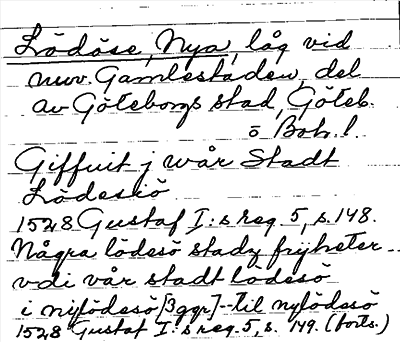 Lödöse, Nya, låg vid
nuv. Gamlestaden, del
av Göteborgs stad, Göteb.
o Boh. l.
Giffuit j wår Stadt
Lödesiö
1528 Gustaf I:s reg. 5, s. 148.
Några lödesö stadz frijheter
vdi vår stadt lödesö
i nylödesö [3 ggr] -- til nylödesö
1528 Gustaf I:s reg. 5, s. 149. (forts.)